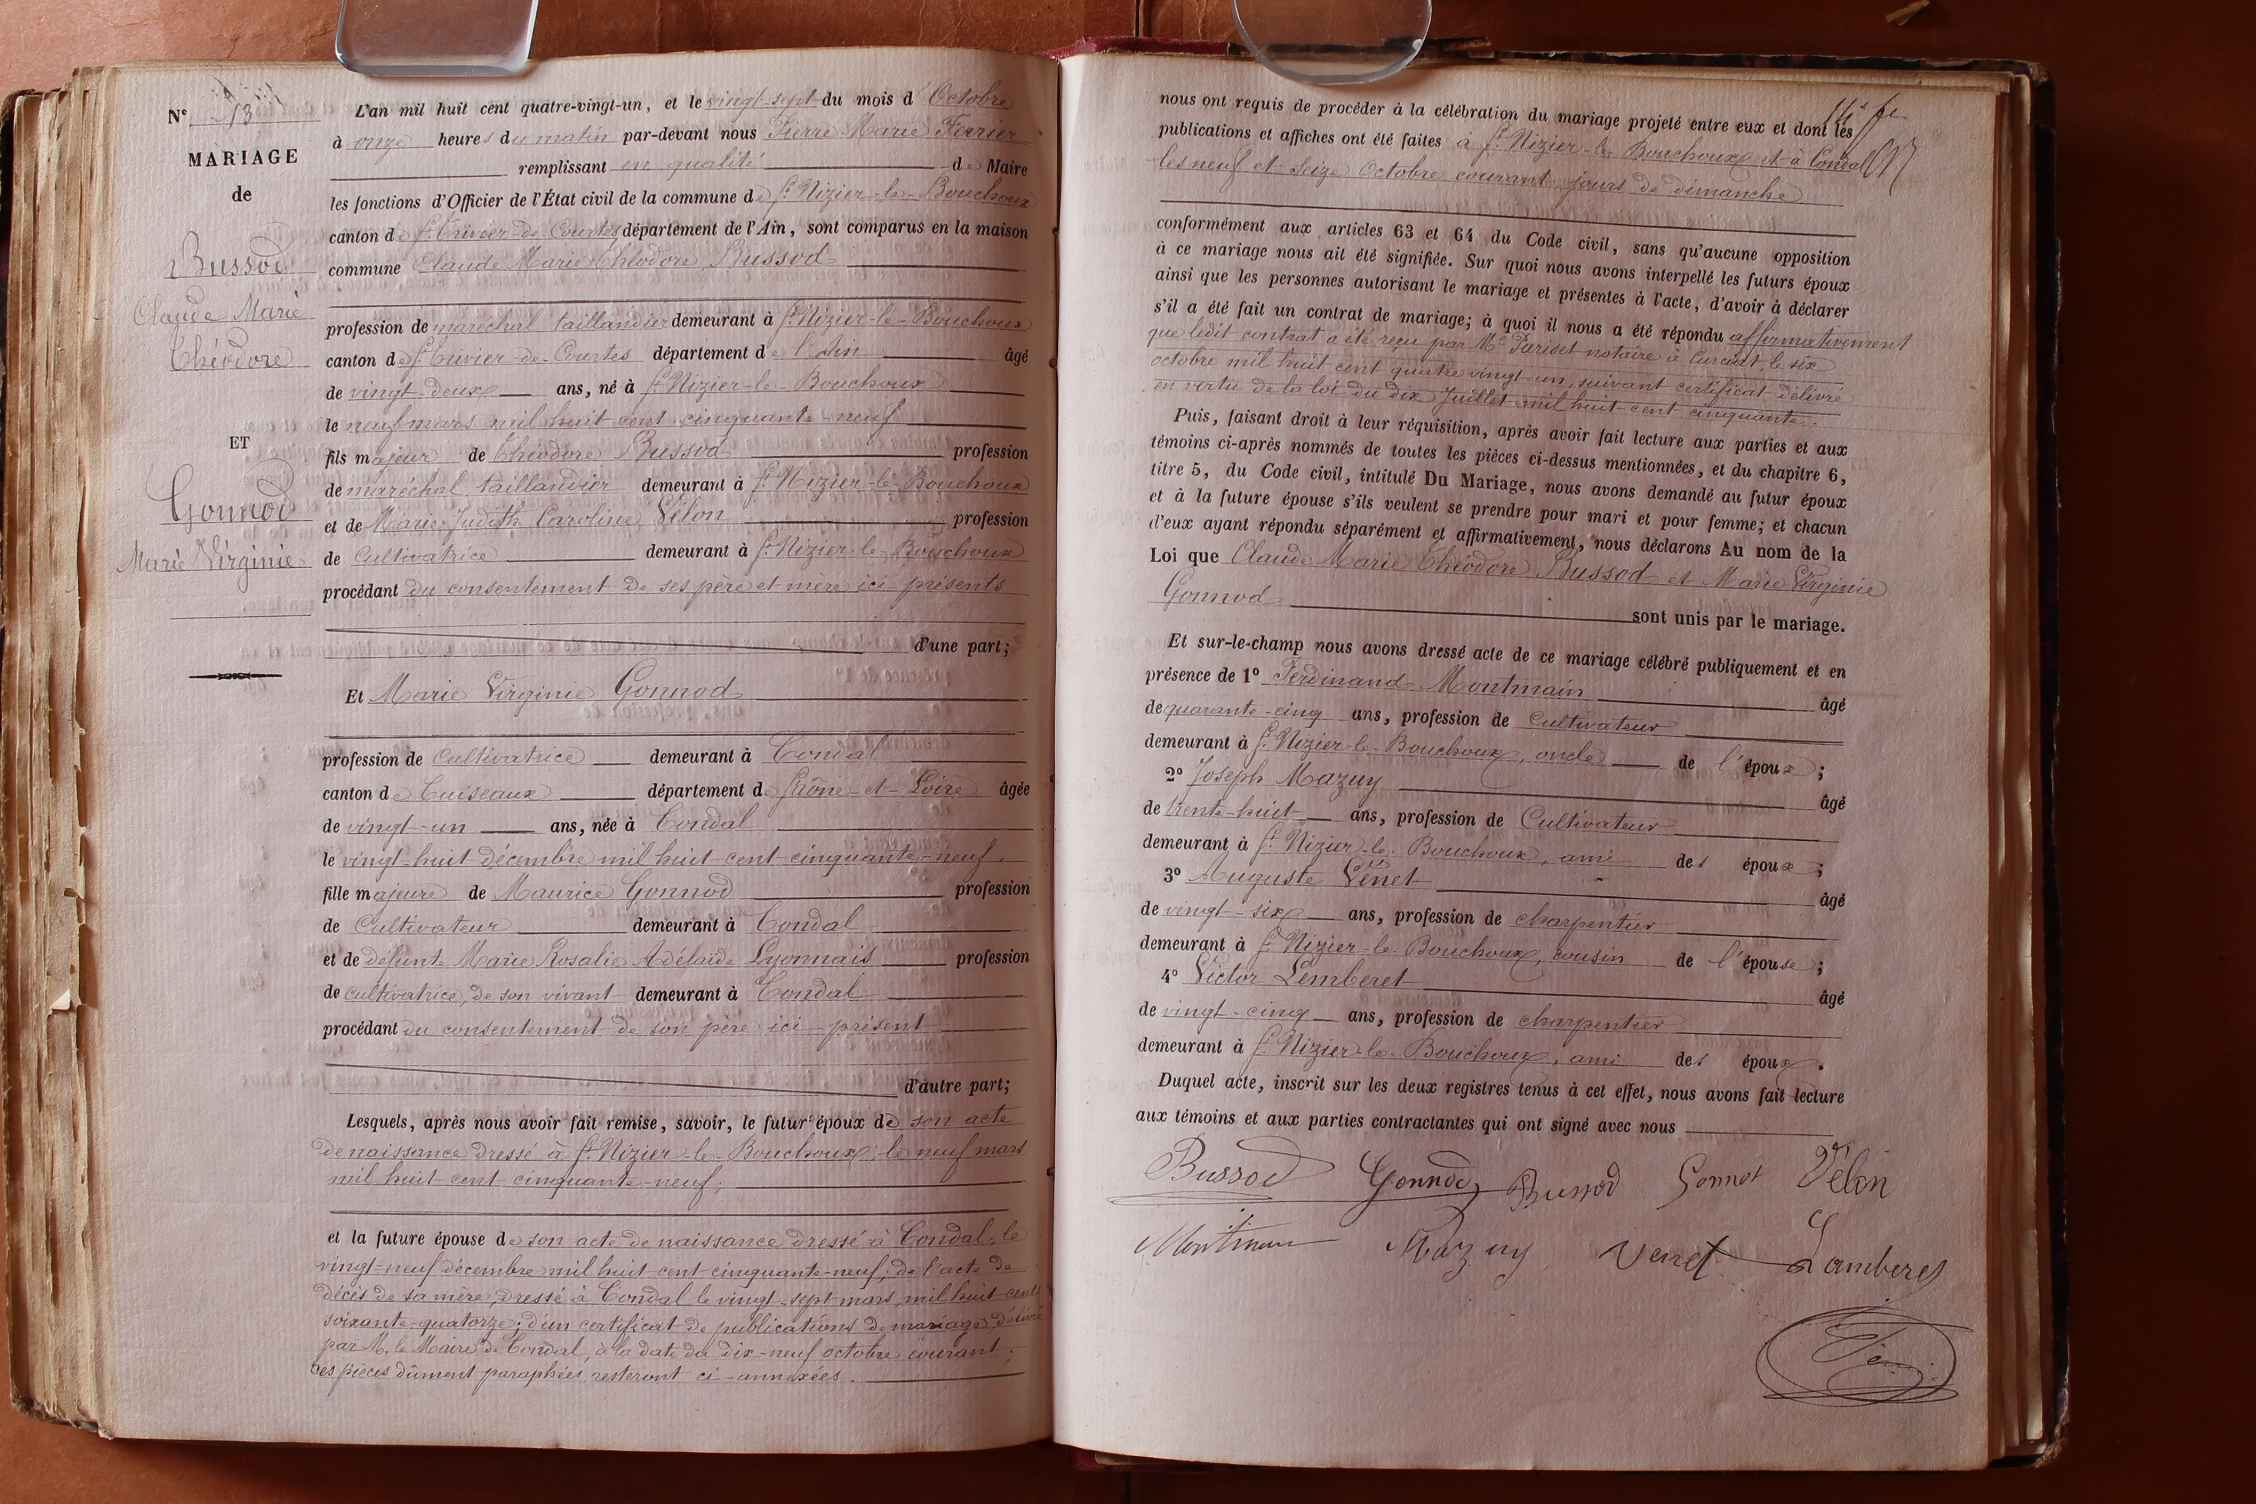 Nº 13
MARIAGE
de
Bussod
Claude Marie
Théodore
ET
Gonnod
Marie Virginie
L'an mil huit cent quatre-vingt-un, et le vingt-sept du mois d'Octobre
à onze heures du matin par-devant nous Pierre Marie Ferrier
remplissant en qualité de Maire
les fonctions d'Officier de l'État civil de la commune de St Nizier-le-Bouchoux
canton de St Trivier-de-Courtes département de l'Ain, sont comparus en la maison
commune Claude Marie Théodore Bussod
profession de maréchal taillandier demeurant à St Nizier-le-Bouchoux
canton de St Trivier-de-Courtes département de l'Ain âgé
de vingt-deux ans, né à St Nizier-le-Bouchoux
le neuf mars mil huit cent cinquante-neuf
fils majeur de Théodore Bussod profession
de maréchal taillandier demeurant à St Nizier-le-Bouchoux
et de Marie Judith Caroline Vélon profession
de Cultivatrice demeurant à St Nizier-le-Bouchoux
procédant du consentement de ses père et mère ici présents
d'une part;
Et Marie Virginie Gonnod
profession de Cultivatrice demeurant à Condal
canton de Cuiseaux département de Saône-et-Loire âgée
de vingt-un ans, née à Condal
le vingt-huit décembre mil huit cent cinquante-neuf.
fille majeure de Maurice Gonnod profession
de Cultivateur demeurant à Condal
et de défunte Marie Rosalie Adélaïde Lyonnais profession
de cultivatrice, de son vivant demeurant à Condal
procédant du consentement de son père ici présent
d'autre part;
Lesquels, après nous avoir fait remise, savoir, le futur époux de son acte
de naissance dressé à St Nizier-le-Bouchoux, le neuf mars
mil huit cent cinquante-neuf;
et la future épouse de son acte de naissance dressé à Condal, le
vingt-neuf décembre mil huit cent cinquante-neuf; de l'acte de
décès de sa mère, dressé à Condal le vingt-sept mars mil huit cent
soixante-quatorze; d'un certificat de publications de mariage, délivré
par M. le Maire de Condal, à la date du dix-neuf octobre courant;
ces pièces dûment paraphées resteront ci-annexées.
14e fe
nous ont requis de procéder à la célébration du mariage projeté entre eux et dont les
publications et affiches ont été faites à St Nizier-le-Bouchoux et à Condal
les neuf et seize Octobre courant jours de dimanche
conformément aux articles 63 et 64 du Code civil, sans qu'aucune opposition
à ce mariage nous ait été signifiée. Sur quoi nous avons interpellé les futurs époux
ainsi que les personnes autorisant le mariage et présentes à l'acte, d'avoir à déclarer
s'il a été fait un contrat de mariage; à quoi il nous a été répondu affirmativement
que ledit contrat a été reçu par Me Pariset notaire à Curciat, le six
octobre mil huit cent quatre vingt-un, suivant certificat délivré
en vertu de la loi du dix Juillet mil huit cent cinquante.
Puis, faisant droit à leur réquisition, après avoir fait lecture aux parties et aux
témoins ci-après nommés de toutes les pièces ci-dessus mentionnées, et du chapitre 6,
titre 5, du Code civil, intitulé Du Mariage, nous avons demandé au futur époux
et à la future épouse s'ils veulent se prendre pour mari et pour femme; et chacun
d'eux ayant répondu séparément et affirmativement, nous déclarons Au nom de la
Loi que Claude Marie Théodore Bussod et Marie Virginie
Gonnod sont unis par le mariage.
Et sur-le-champ nous avons dressé acte de ce mariage célébré publiquement et en
présence de 1º Ferdinand Montmain âgé
de quarante-cinq ans, profession de Cultivateur
demeurant à St Nizier-le-Bouchoux, oncle de l'époux;
2º Joseph Mazuy âgé
de trente-huit ans, profession de Cultivateur
demeurant à St Nizier-le-Bouchoux, ami des époux;
3º Auguste Vénet âgé
de vingt-six ans, profession de charpentier
demeurant à St Nizier-le-Bouchoux, cousin de l'épouse;
4º Victor Lemberet âgé
de vingt-cinq ans, profession de charpentier
demeurant à St Nizier-le-Bouchoux, ami des époux.
Duquel acte, inscrit sur les deux registres tenus à cet effet, nous avons fait lecture
aux témoins et aux parties contractantes qui ont signé avec nous
Bussod Gonnod Bussod Gonnot Vélon
Montmain Mazuy Venet Lamberet